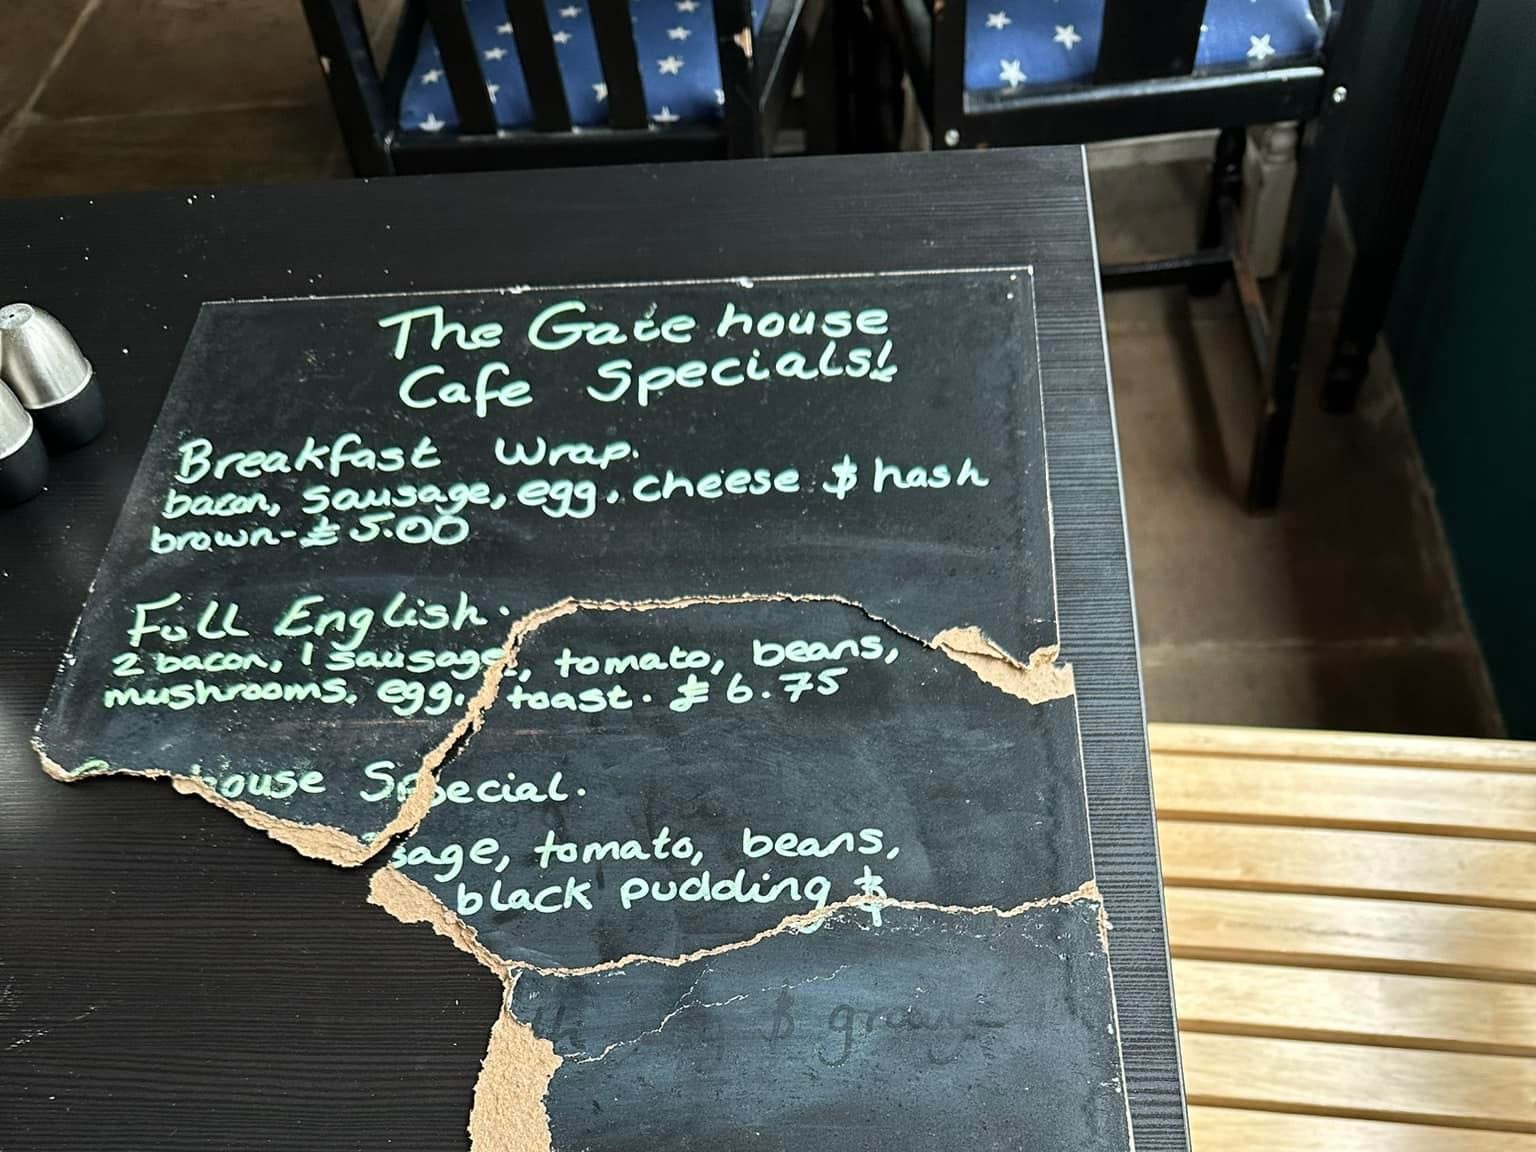 The Gatehouse
Cafe Specials!
Breakfast Wrap.
bacon, sausage, egg, cheese & hash
brown - £5.00
Full English.
2 bacon, 1 sausage, tomato, beans,
mushrooms, egg, toast. £6.75
house Special.
sage, tomato, beans,
black pudding &
& gravy